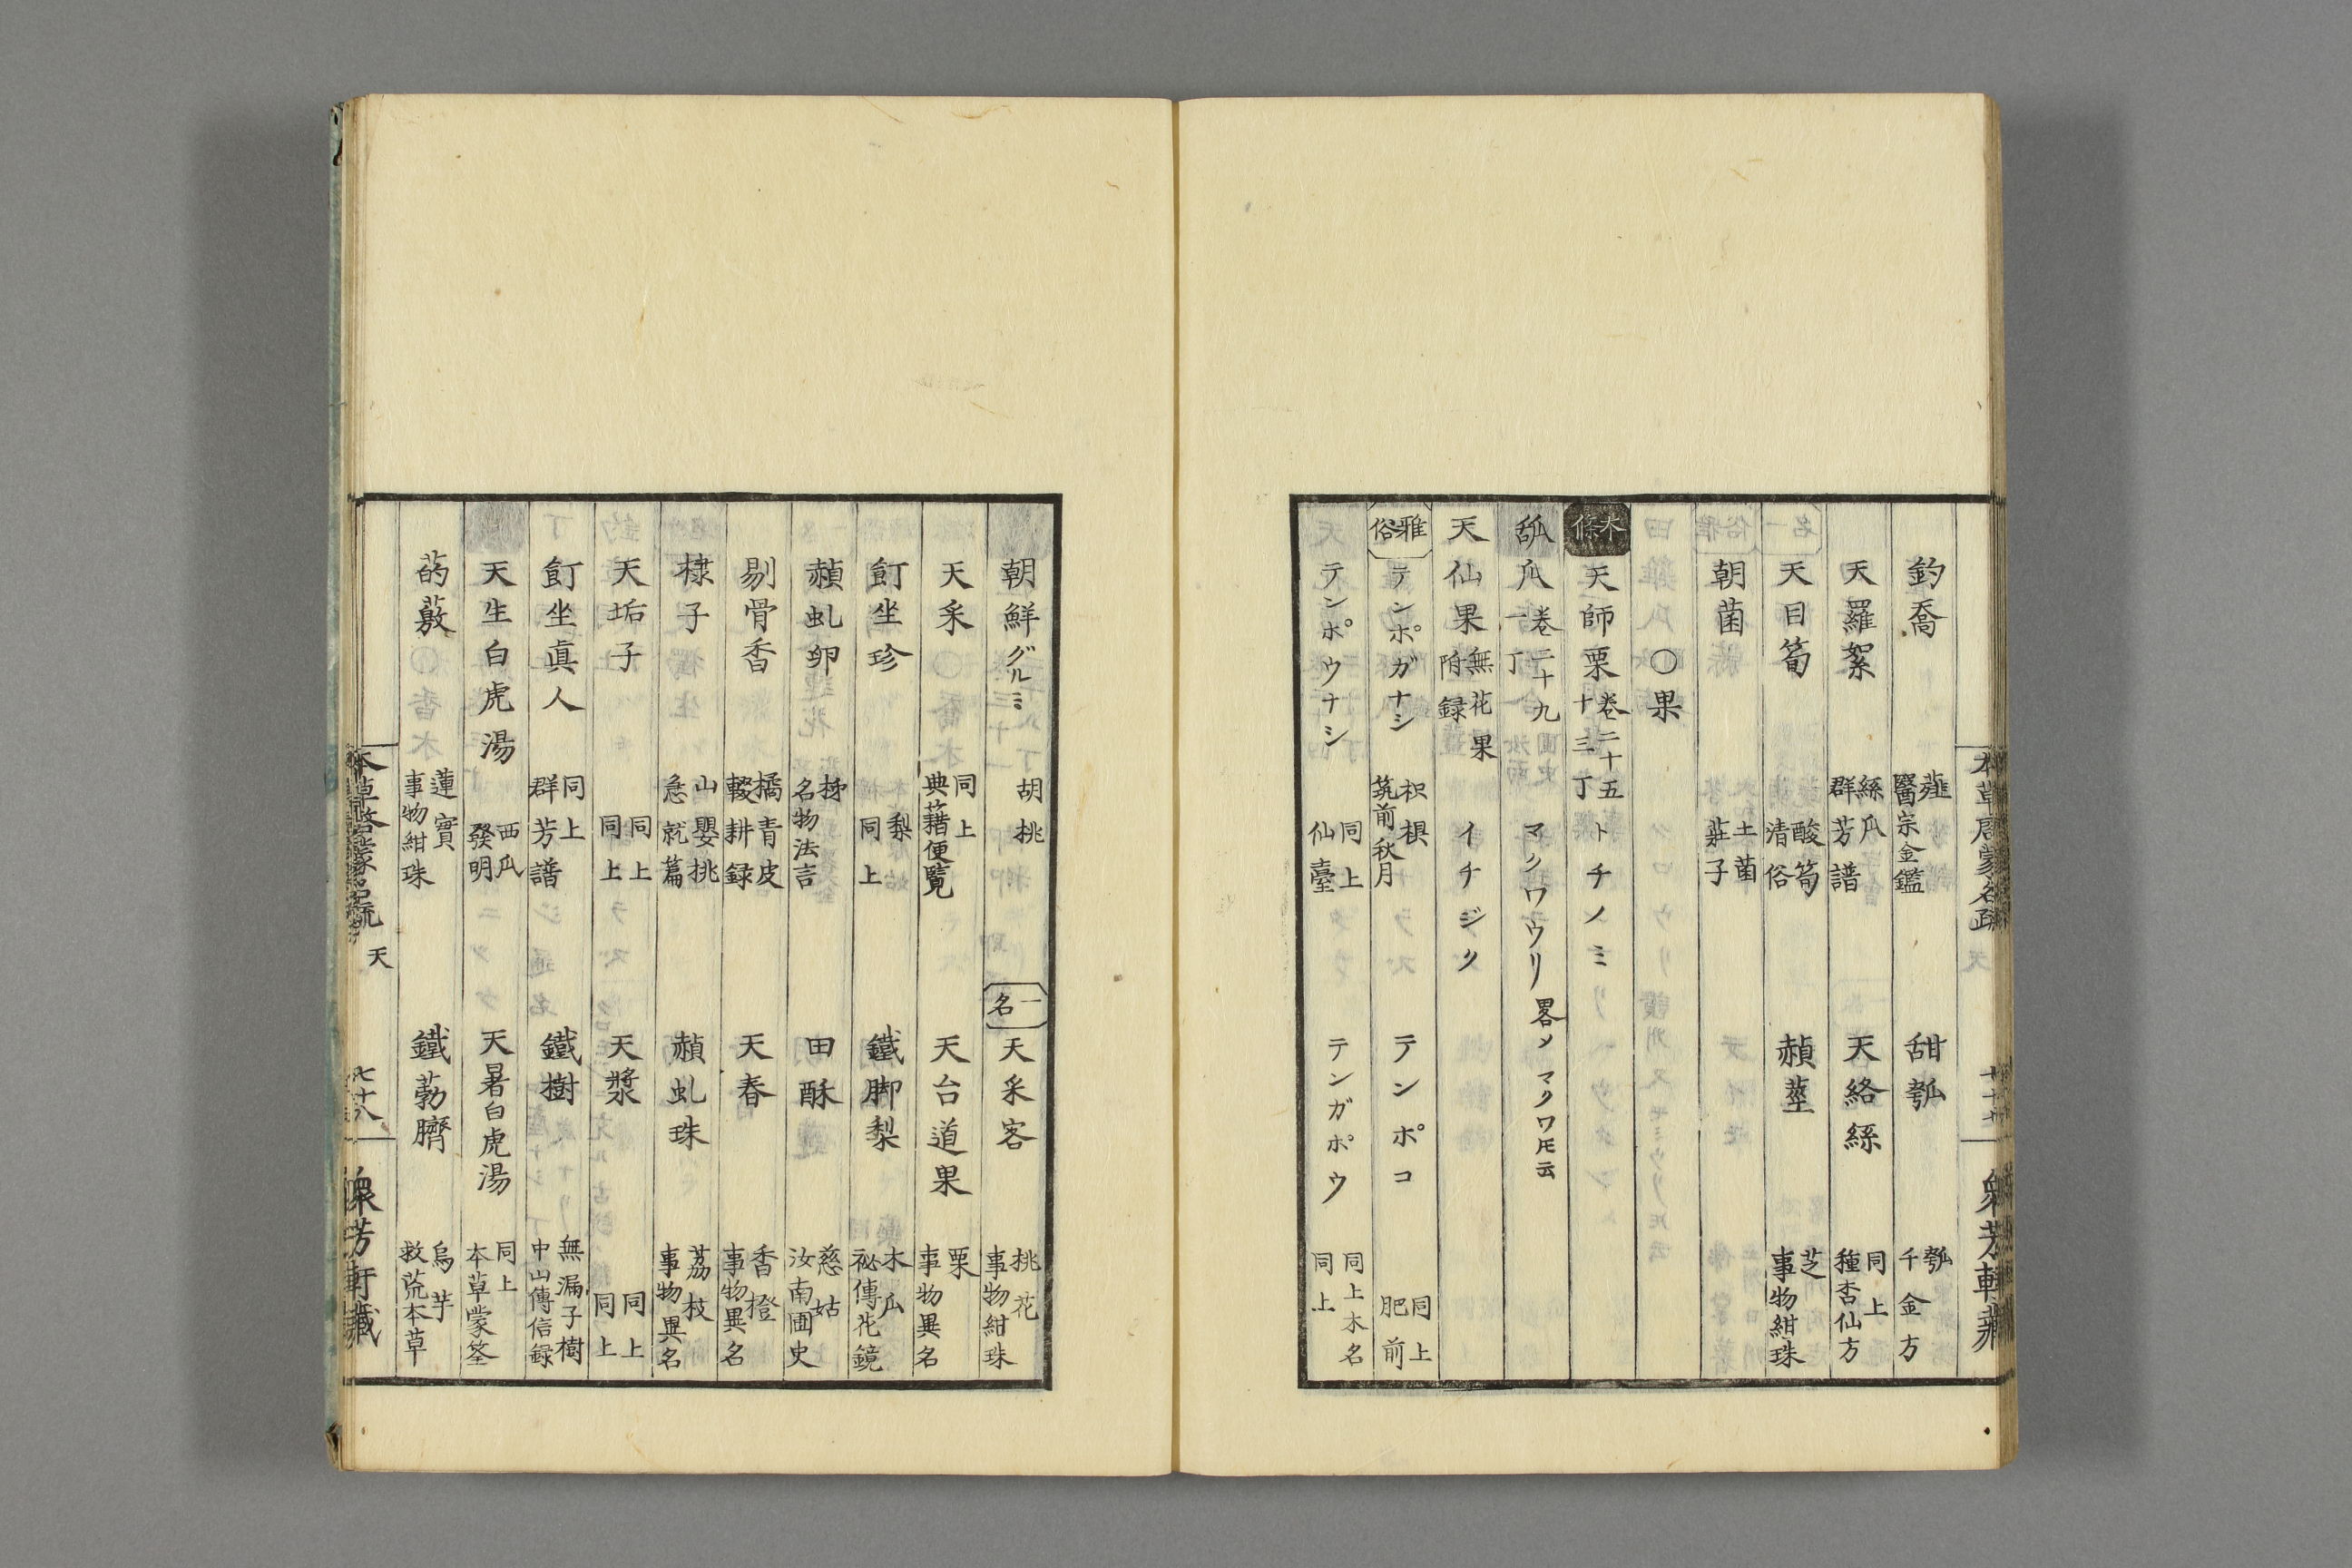 釣喬 薤 醫宗金鑑 甜瓠 瓠 千金方
天羅絮 絲瓜 群芳譜 天絡絲 同上 種杏仙方
天目筍 酸筍 清俗 赬莖 芝 事物紺珠
朝菌 土菌 莊子
〇果
本條 天師栗 卷二十五 十三丁 トチノミ
瓜 卷二十九 一丁 マクワウリ 畧メ マクワ𪜈云
天仙果 無花果附録 イチジク
雅俗 テンポガナシ 枳椇 筑前秋月 テンポコ 同上 肥前
テンポウナシ 同上 仙臺 テンガポウ 同上木名 同上
朝鮮グルミ 胡桃 一名 天采客 桃花 事物紺珠
天釆 同上 典藉便覧 天台道果 栗 事物異名
飣坐珍 梨 同上 鐵脚梨 木瓜 祕傳花鏡
赬虬卵 柹 名物法言 田酥 慈姑 汝南圃史
剔骨香 橘青皮 輟耕録 天春 香橙 事物異名
棣子 山嬰桃 急就篇 赬虬珠 荔枝 事物異名
天垢子 同上 同上 天漿 同上 同上
飣坐眞人 同上 群芳譜 鐵樹 無漏子樹 中山傳信録
天生白虎湯 西瓜 發明 天暑白虎湯 同上 本草蒙筌
菂薂 蓮實 事物紺珠 鐵葧臍 烏芋 救荒本草
天 七十八
芳軒藏